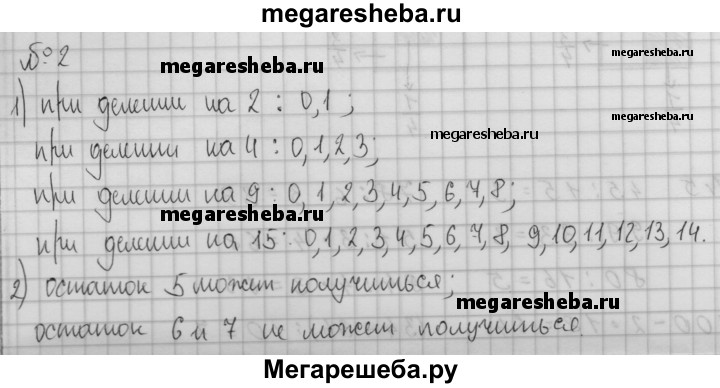 megaresheba.ru
№ 2
megaresheba.ru
1) при делении на 2 : 0,1;
megaresheba.ru
при делении на 4 : 0,1,2,3;
megaresheba.ru
при делении на 9 : 0,1,2,3,4,5,6,7,8;
megaresheba.ru
при делении на 15: 0,1,2,3,4,5,6,7,8, 9,10,11,12,13,14.
2) остаток 5 может получиться;
megaresheba.ru
остаток 6 и 7 не может получиться.
Мегарешеба.ру